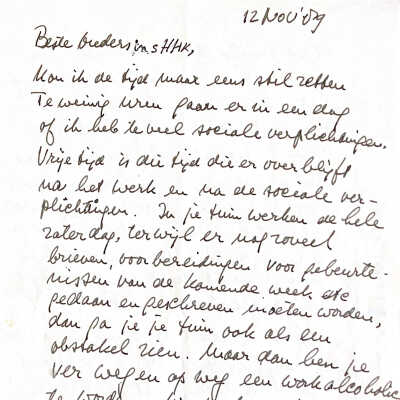 12 Nov '09
Beste broeders van s HHK,
Kon ik de tijd maar eens stil zetten
Te weinig uren gaan er in een dag
of ik heb te veel sociale verplichtingen.
Vrije tijd is die tijd die er overblijft
na het werk en na de sociale ver-
plichtingen. In je tuin werken de hele
zaterdag, terwijl er nog zoveel
brieven, voorbereidingen voor gebeurte-
nissen van de komende week etc
gedaan en geschreven moeten worden,
dan ga je je tuin ook als een
obstakel zien. Maar dan ben je
ver weg en op weg een workaholic
te worden